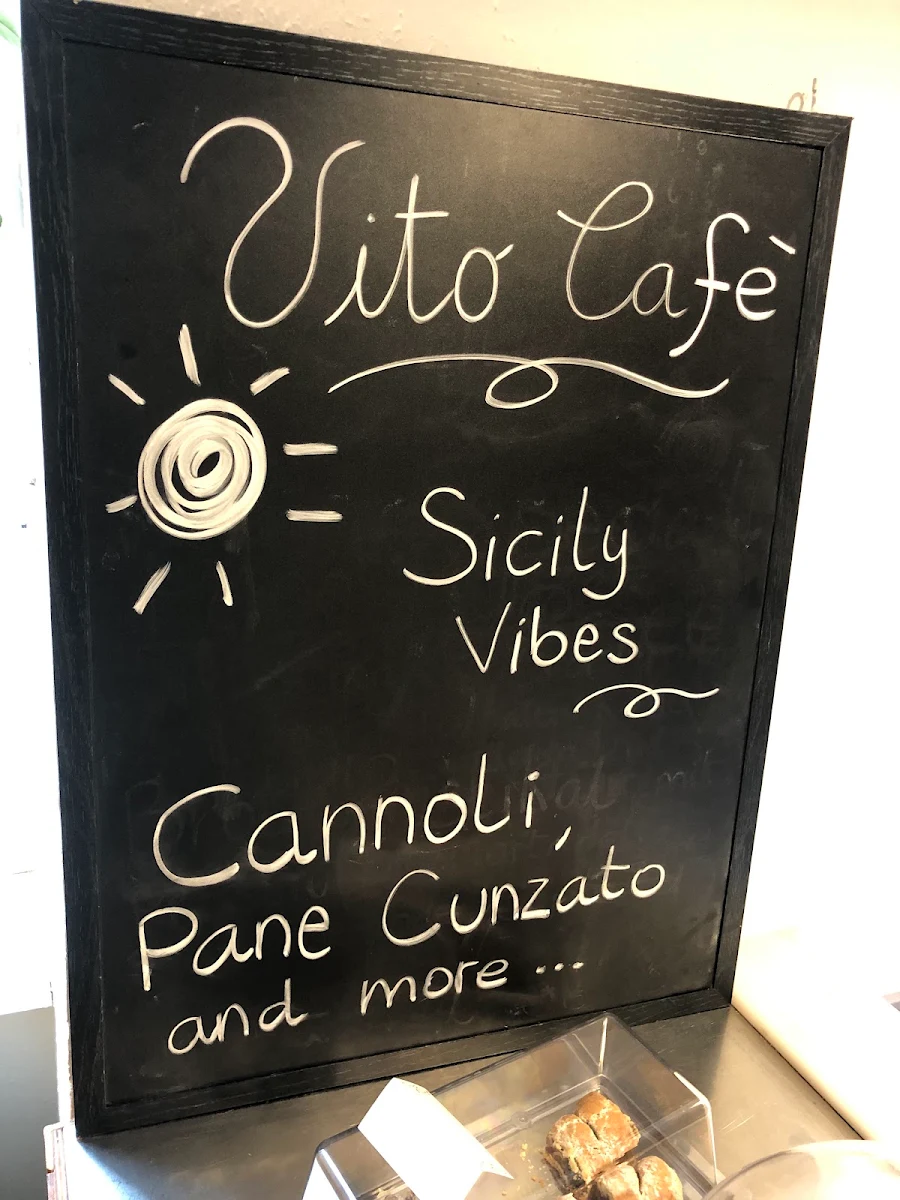 Vito Cafè
Sicily
Vibes
Cannoli,
Pane Cunzato
and more ...